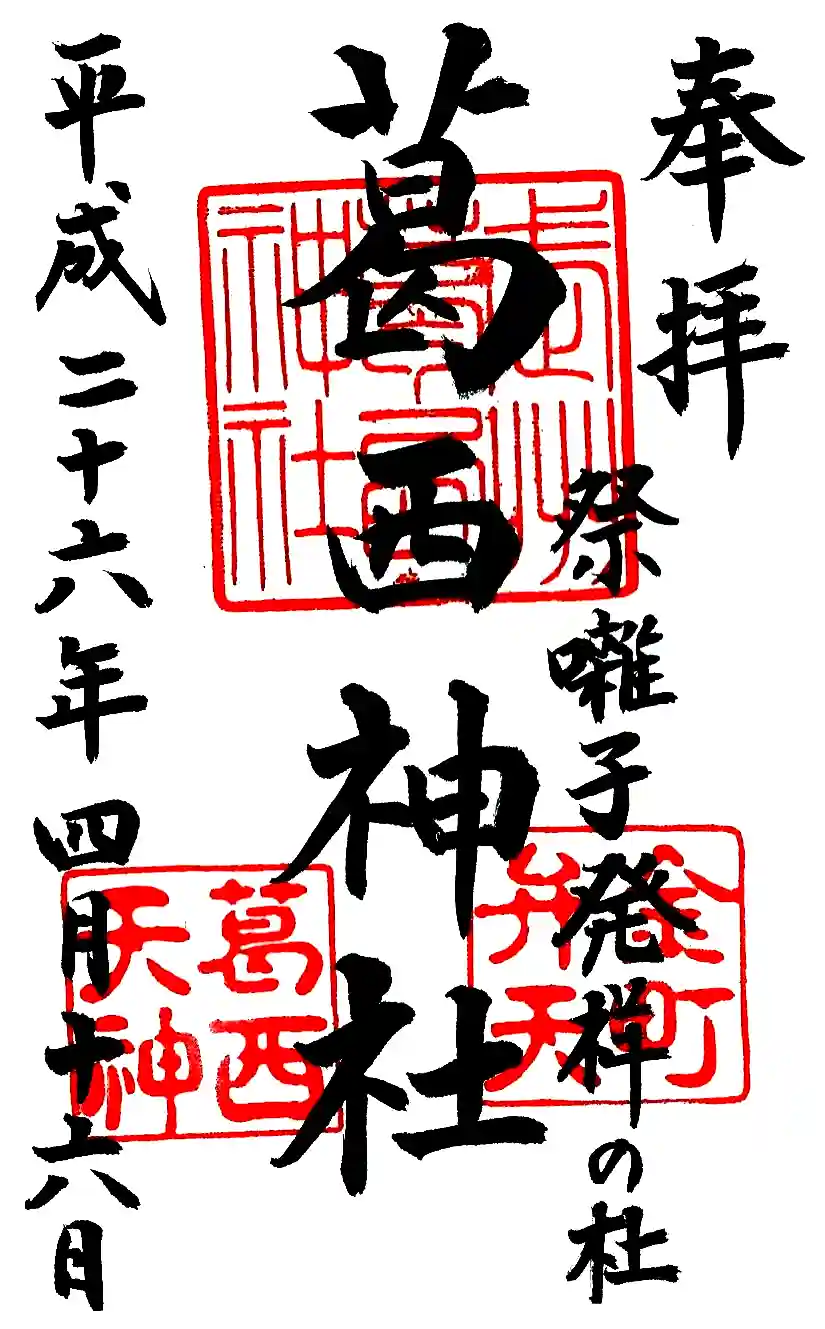 奉拝
祭囃子発祥の杜
葛西神社
平成二十六年四月十六日
武州
葛西
神社
金町
弁天
葛西
天神